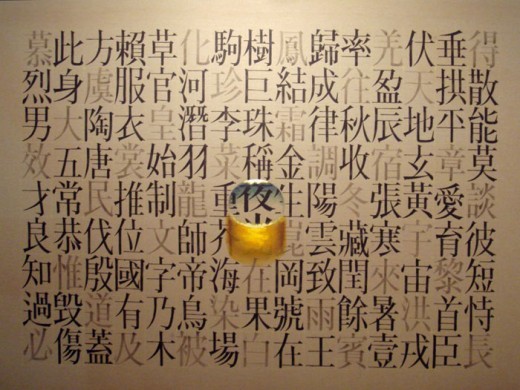 得散能莫談彼短恃長
垂拱平章愛育黎首臣
伏天地玄黃宇宙洪戎
羌盈辰宿張寒來暑壹
率往秋收冬藏閏餘賓
歸成律調陽雲致雨王
鳳結霜金生崑岡號在
樹巨珠稱夜光在果白
駒珍李菜重芥海染場
化河潛羽龍師帝烏被
草官皇始制文字乃木
賴服衣裳推位國有及
方虞陶唐民伐殷道蓋
此身大五常恭惟毀傷
慕烈男效才良知過必